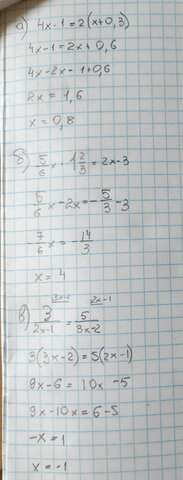 а) 4x-1=2(x+0,3)
4x-1=2x+0,6
4x-2x=1+0,6
2x=1,6
x=0,8
б) 5/6 x+1 2/3=2x-3
5/6 x-2x=-5/3-3
-7/6 x=-14/3
x=4
в) 3/(2x-1)=5/(3x-2)
3(3x-2)=5(2x-1)
9x-6=10x-5
9x-10x=6-5
-x=1
x=-1